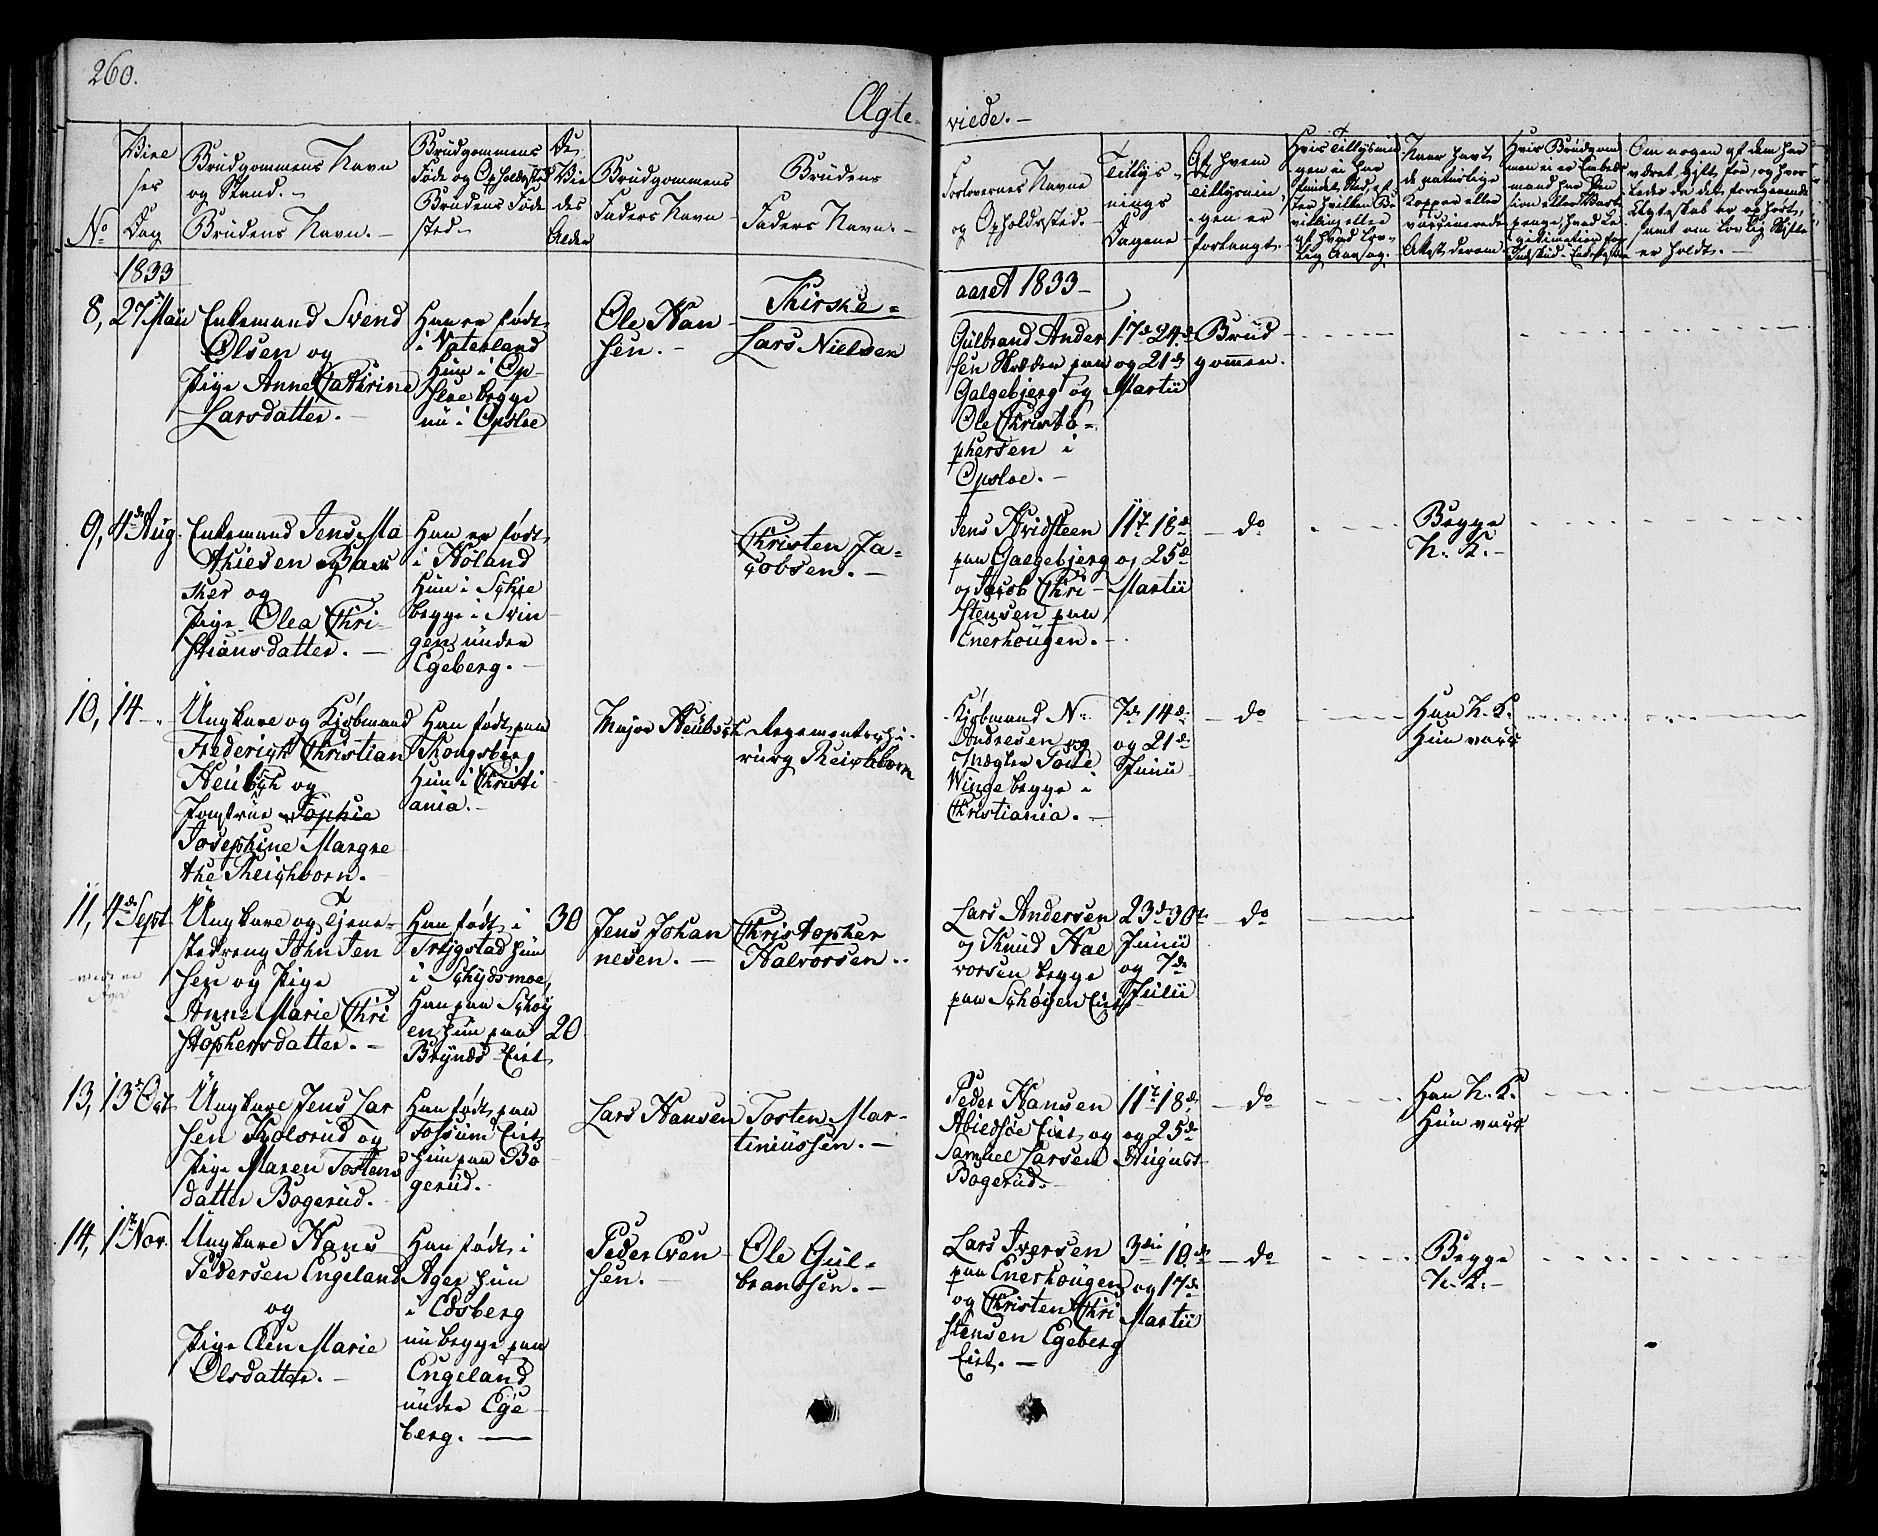 260.
Ægte-
viede. -
No
Vielses
Dag
Brudgommens Navn
og Stand. -
Brudens Navn. -
Brudgommens
Føde og Opholdssted
Brudens Føde
sted -
De
Vie
des
Alder
Brudgommens
Faders Navn -
Brudens
Faders Navn. -
Forlovernes Navne
og Opholdssted.
Tillys-
nings
Dagene
Af hvem
Tillysnin
gen er
forlangt.
Naar havt
de naturlige
Kopper eller
vaccinerede
Attest derom
Om nogen af dem har
været gift før, og hvor
Ægteskab er ophørt,
samt om lovlig Skifte
er holdt. -
1833
Kirske =
aaret 1833 -
8, 27 Mai
Enkemand Svend
Olsen og
Pige Anne Cathrine
Larsdatter. -
Han er født
i Vaterland
Hun i Op
sloe begge
nu i Opsloe
Ole Han
sen. -
Lars Nielsen
Gulbrand Ander
sen Skræder paa
Galgebjerg og
Ole Christo-
phersen i
Opsloe. -
17de 24de
og 21de
Martii
Brud
gommen.
9, 4de Aug.
Enkemand Jens Ma
thiesen
og
Pige Olea Chri-
stiansdatter. -
Han er født
i Høland
Hun i Schie
begge i Svin
gen under
Egeberg. -
Christen Ja-
cobsen. -
Jens Hvidsteen
paa Galgebjerg
og Jacob Chri-
stensen paa
Enerhougen. -
11te 18de
og 25de
Martii
do
Begge
N. K. -
10, 14 -
Ungkarl og Kjøbmand
Frederich Christian
Heubsch og
Jomfrue Sophie
Josephine Margre
the Theichborn. -
Han født paa
Kongsberg
Hun i Christi
ania. -
Major Heubsch
Regimentschi-
rurg Theichborn
Kjøbmand N.
Andresen og
Mægler Tode
Winge begge i
Christiania. -
7de 14de
og 21de
Junii
do
Han N. K.
Hun vacc
11, 4de Sept
Ungkarl og Tjene-
stedreng John Jen
sen og Pige
Anne Marie Chri
stophersdatter. -
Han født i
Trygstad hun
i Schydsmoe,
Han paa Schøy
en hun paa
Bryns Eiet
30
20
Jens Johan
nesen. -
Christopher
Halvorsen. -
Lars Andersen
og Knud Hal
vorsen begge
paa Schøyen Eiet
23de 30te
Junii
og 7de
Julii
do
13, 13de Oct
Ungkarl Jens Lar
sen Kolsrud og
Pige Maren Tostens
datter Bogerud. -
Han født paa
Fossum Eiet
hun paa Bo
gerud. -
Lars Hansen
Tosten Mar-
tiniussen. -
Peder Hansen
Abiedsøe Eiet og
Samuel Larsen
Bogerud. -
11te 18de
og 25de
August
do
Han N. K.
Hun vacc
14, 1te Nov.
Ungkarl Hans
Pedersen Engeland
og
Pige Elen Marie
Olsdatter. -
Han født i
Ager hun
i Edsberg
nu begge paa
Engeland
under Ege-
berg. -
Peder Even
sen. -
Ole Gul-
brandsen. -
Lars Iversen
paa Enerhougen
og Christen Chri
stensen Egeberg
Eiet. -
3die 10de
og 17de
Martii
do
Begge
N. K. -